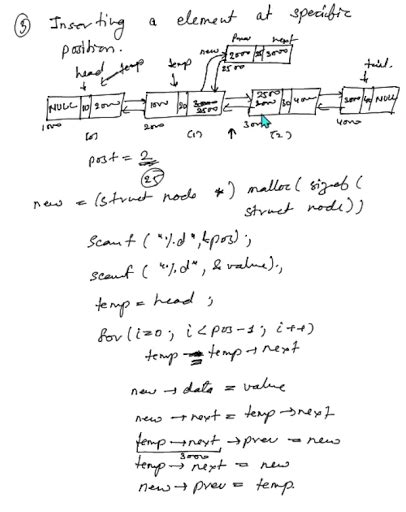 ③ Inserting a element at specific
position.
prev next
new 2000 25 3000
2500
head temp temp tail
NULL 10 2000 1000 20 3000 2500 2500 2000 30 4000 3000 40 NULL
1000 (0) 2000 (1) 3000 (2) 4000
post = 2
25
new = (struct node *) malloc(sizeof(
struct node))
scanf("%d", &pos);
scanf("%d", &value);
temp = head ;
for(i=0; i<pos-1; i++)
temp = temp → next
new → data = value
new → next = temp → next
temp → next → prev = new
3000
temp → next = new
new → prev = temp.